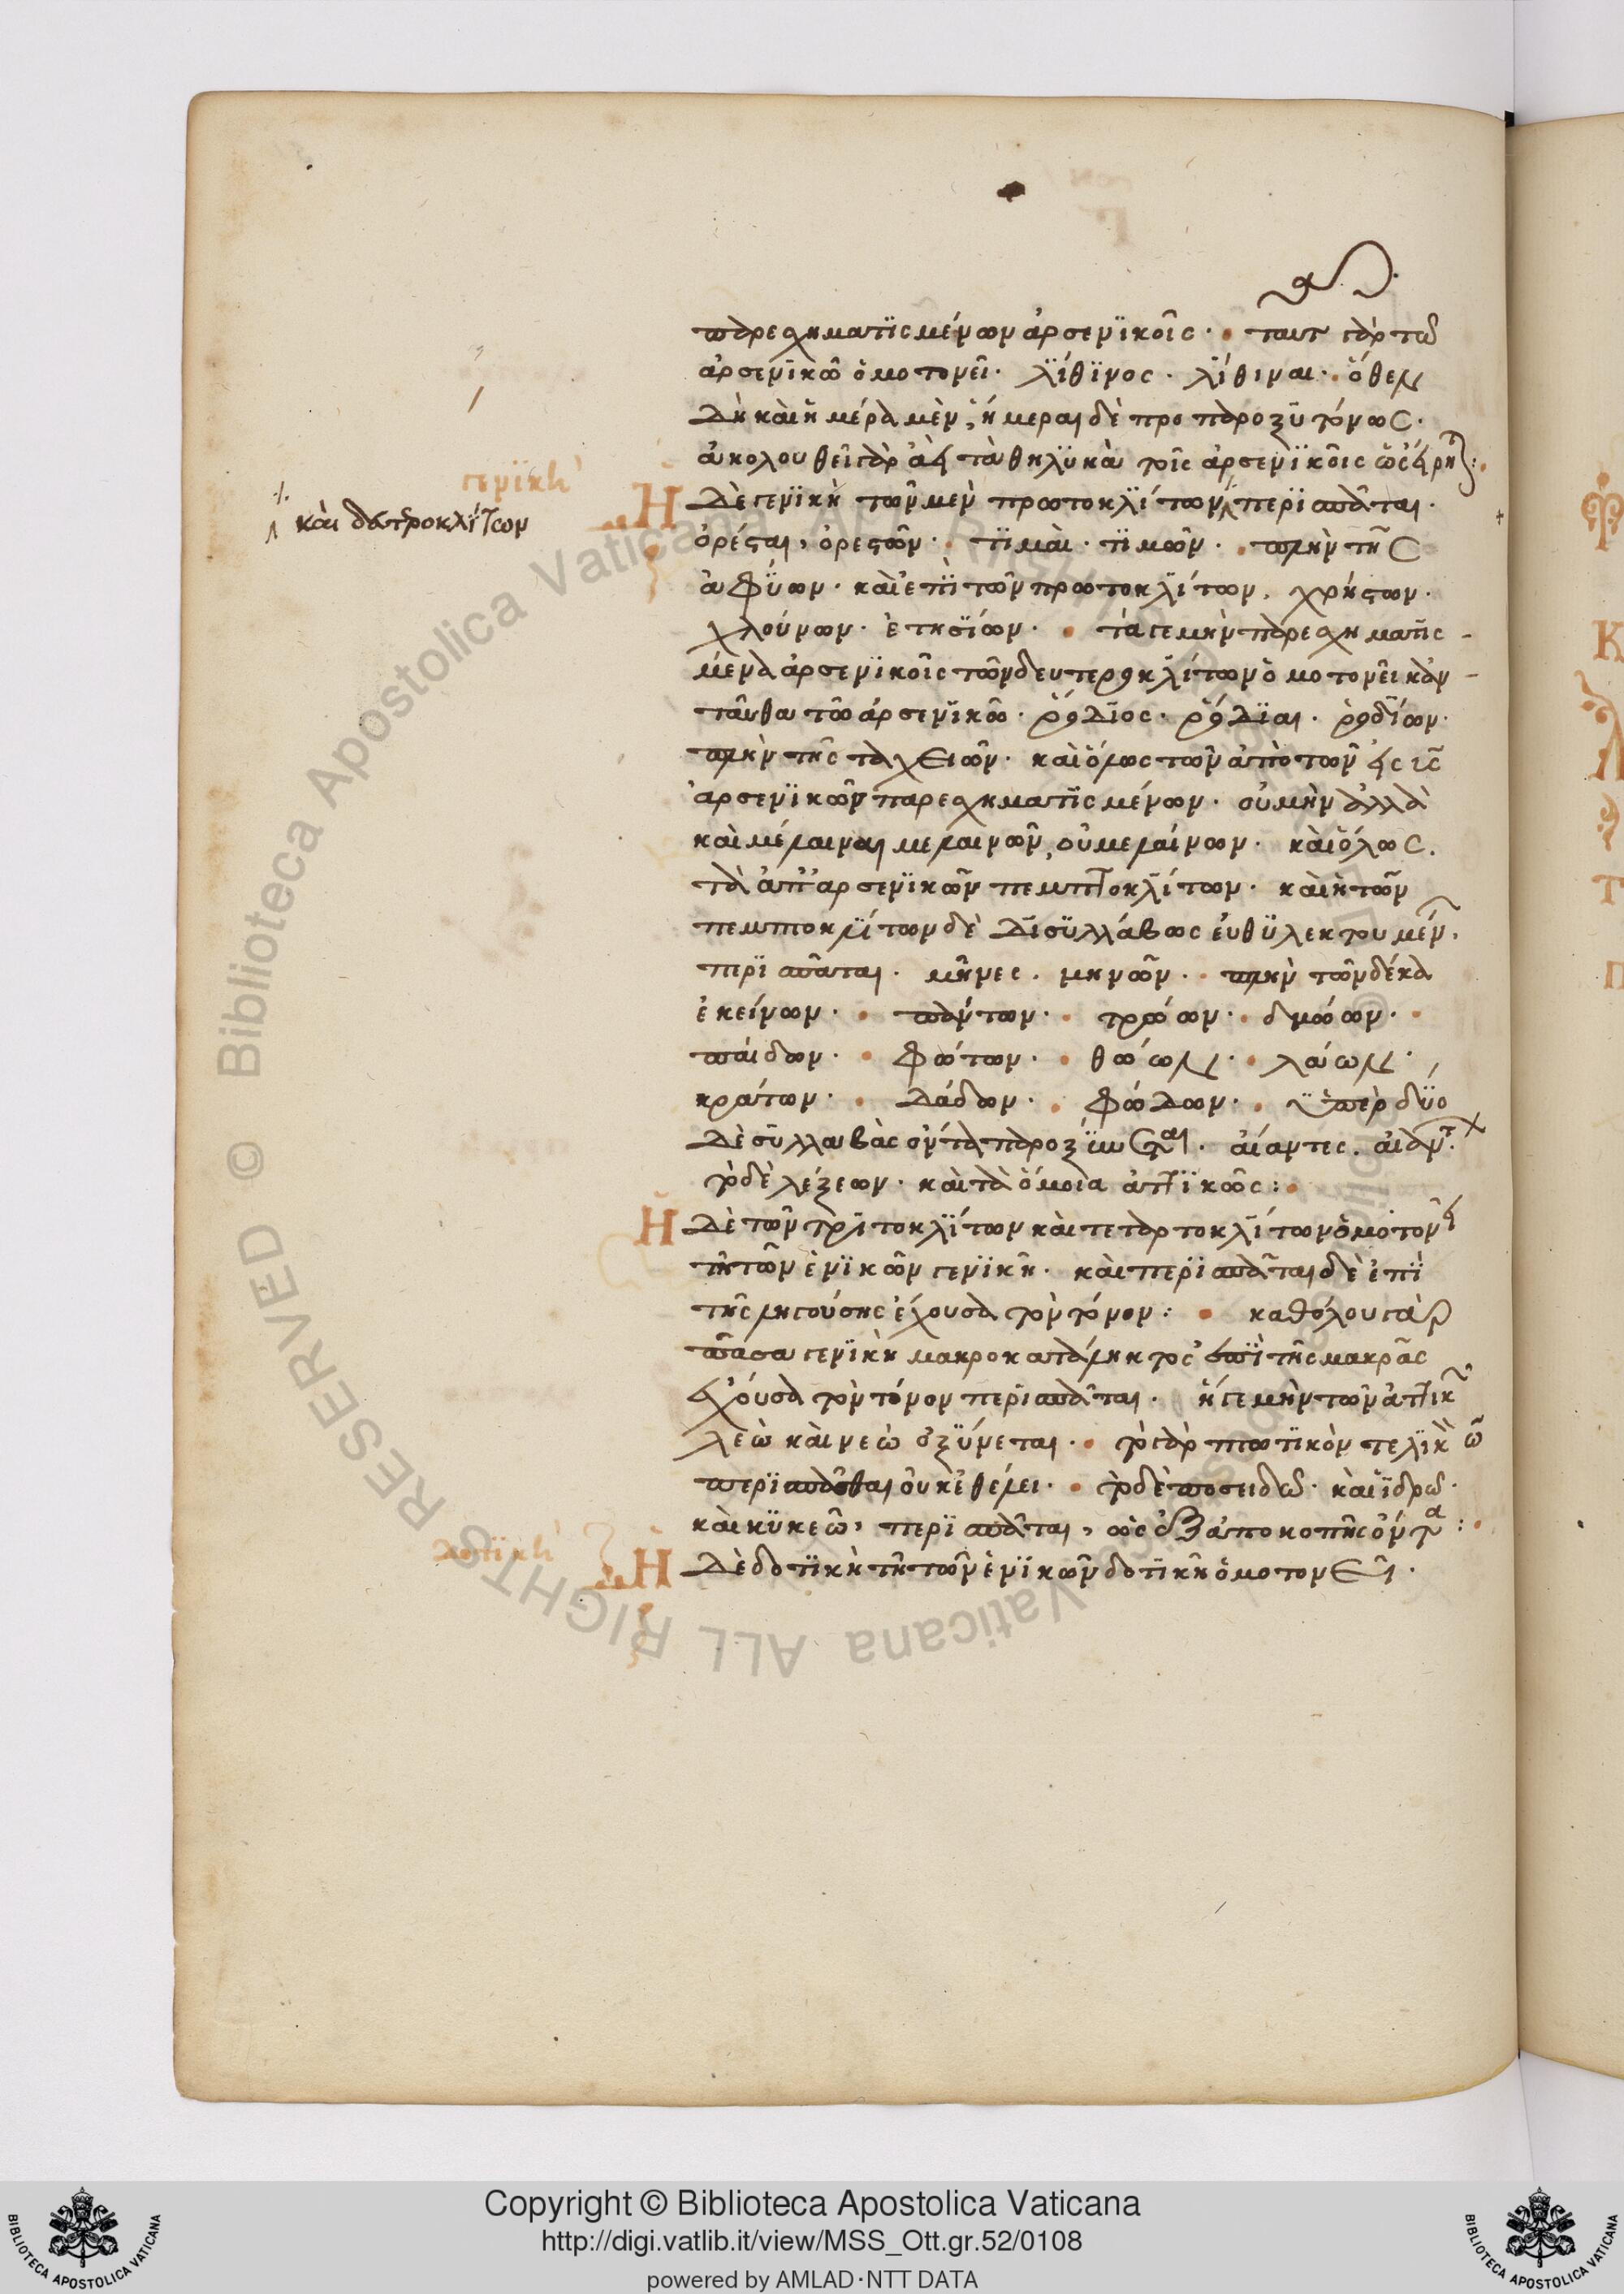 παρεσχηματισμένων ἀρσενικοῖς· ταῦτα γὰρ τῶ
ἀρσενικῶ ὁμοτονεῖ· λίθινος· λίθιναι· ὅθεν
δὴ καὶ ἡμέρα μὲν, ἥμεραι δὲ προπαροξυτόνως·
ἀκολουθεῖ γὰρ ἀεὶ τὰ θηλυκὰ τοῖς ἀρσενικοῖς ὡς εἴρηται:
γενική
Ἡ δὲ γενικὴ τῶν μὲν πρωτοκλίτων περισπᾶται·
καὶ δευτεροκλίτων
ὀρέσται, ὀρεστῶν· τιμαὶ· τιμῶν· πλὴν τῆς
ἀφύων· καὶ ἐπὶ τῶν πρωτοκλίτων, χρήστων·
χλούνων· ἐτησίων· τά γε μὴν παρεσχηματισ-
μένα ἀρσενικοῖς τῶν δευτεροκλίτων ὁμοτονεῖ κἀν-
ταῦθα τῶ ἀρσενικῶ· ῥόδιος· ῥόδιαι· ῥοδίων·
πλὴν τῆς ταχειῶν· καὶ ὅλως τῶν ἀπὸ τῶν εἰς υς
ἀρσενικῶν παρεσχηματισμένων· οὐ μὴν ἀλλὰ
καὶ μέλαιναι μελαινῶν, οὐ μελαίνων· καὶ ὅλως.
τὰ ἀπ' ἀρσενικῶν πεμπτοκλίτων· καὶ ἡ τῶν
πεμπτοκλίτων δὲ δισυλλάβως εὐθὺ λεκτουμέν·
περισπᾶται· μῆνες· μηνῶν· πλὴν τῶν δέκα
ἐκείνων· πάντων· τρώων· δμώων·
παίδων· φώτων· θώων· λάων·
κράτων· δάδων· φώδων· ὑπὲρ δύο
δὲ συλλαβὰς ὄντα παροξύνεται· αἴαντες. αἰάντ·
τὸ δὲ λέξεων· καὶ τὰ ὅμοια ἀττικῶς:
Ἡ δὲ τῶν τριτοκλίτων καὶ τεταρτοκλίτων ὁμοτονεῖ
τῆ τῶν ἑνικῶν γενικῆ· καὶ περισπᾶται δὲ ἐπὶ
τῆς ληγούσης ἔχουσα τὸν τόνον: καθόλου γὰρ
πᾶσα γενικὴ μακροκατάληκτος ἐπὶ τῆς μακρᾶς
ἔχουσα τὸν τόνον περισπᾶται· ἥ γε μὴν τῶν ἀττικ
λεὼ καὶ νεὼ ὀξύνεται· τὸ γὰρ πτωτικὸν τελικὸν ω
περισπᾶσθαι οὐκ ἐθέλει· τὸ δὲ ποσειδῶ· καὶ ἱδρῶ·
καὶ κυκεῶ, περισπᾶται, ὡς ἐξ ἀποκοπῆς ὄντα:
δοτική
Ἡ δὲ δοτικὴ τῆ τῶν ἑνικῶν δοτικῆ ὁμοτονεῖ·
Copyright © Biblioteca Apostolica Vaticana
http://digi.vatlib.it/view/MSS_Ott.gr.52/0108
powered by AMLAD·NTT DATA